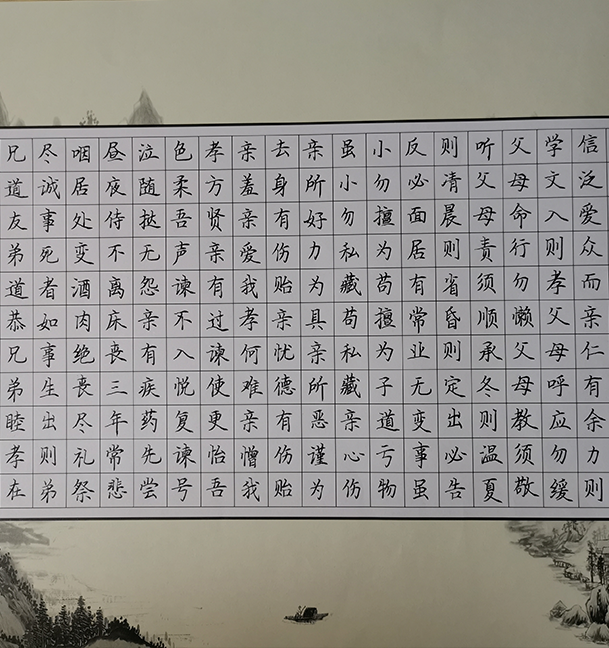 信泛爱众而亲仁有余力则
学文入则孝父母呼应勿缓
父母命行勿懒父母教须敬
听父母责须顺承冬则温夏
则凊晨则省昏则定出必告
反必面居有常业无变事虽
小勿擅为苟擅为子道亏物
虽小勿私藏苟私藏亲心伤
亲所好力为具亲所恶谨为
去身有伤贻亲忧德有伤贻
亲羞亲爱我孝何难亲憎我
孝方贤亲有过谏使更怡吾
色柔吾声谏不入悦复谏号
泣随挞无怨亲有疾药先尝
昼夜侍不离床丧三年常悲
咽居处变酒肉绝丧尽礼祭
尽诚事死者如事生出则弟
兄道友弟道恭兄弟睦孝在